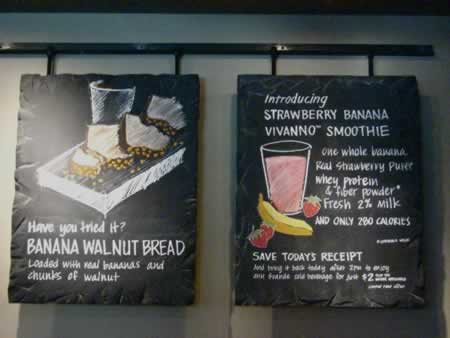 Have you tried it?
BANANA WALNUT BREAD
Loaded with real bananas and
chunks of walnut
Introducing
STRAWBERRY BANANA
VIVANNO™ SMOOTHIE
one whole banana
Real Strawberry Puree
whey protein
& fiber powder*
Fresh 2% milk
AND ONLY 280 CALORIES
SAVE TODAY'S RECEIPT
And bring it back today after 2pm to enjoy
any Grande cold beverage for just $2
Limited time offer